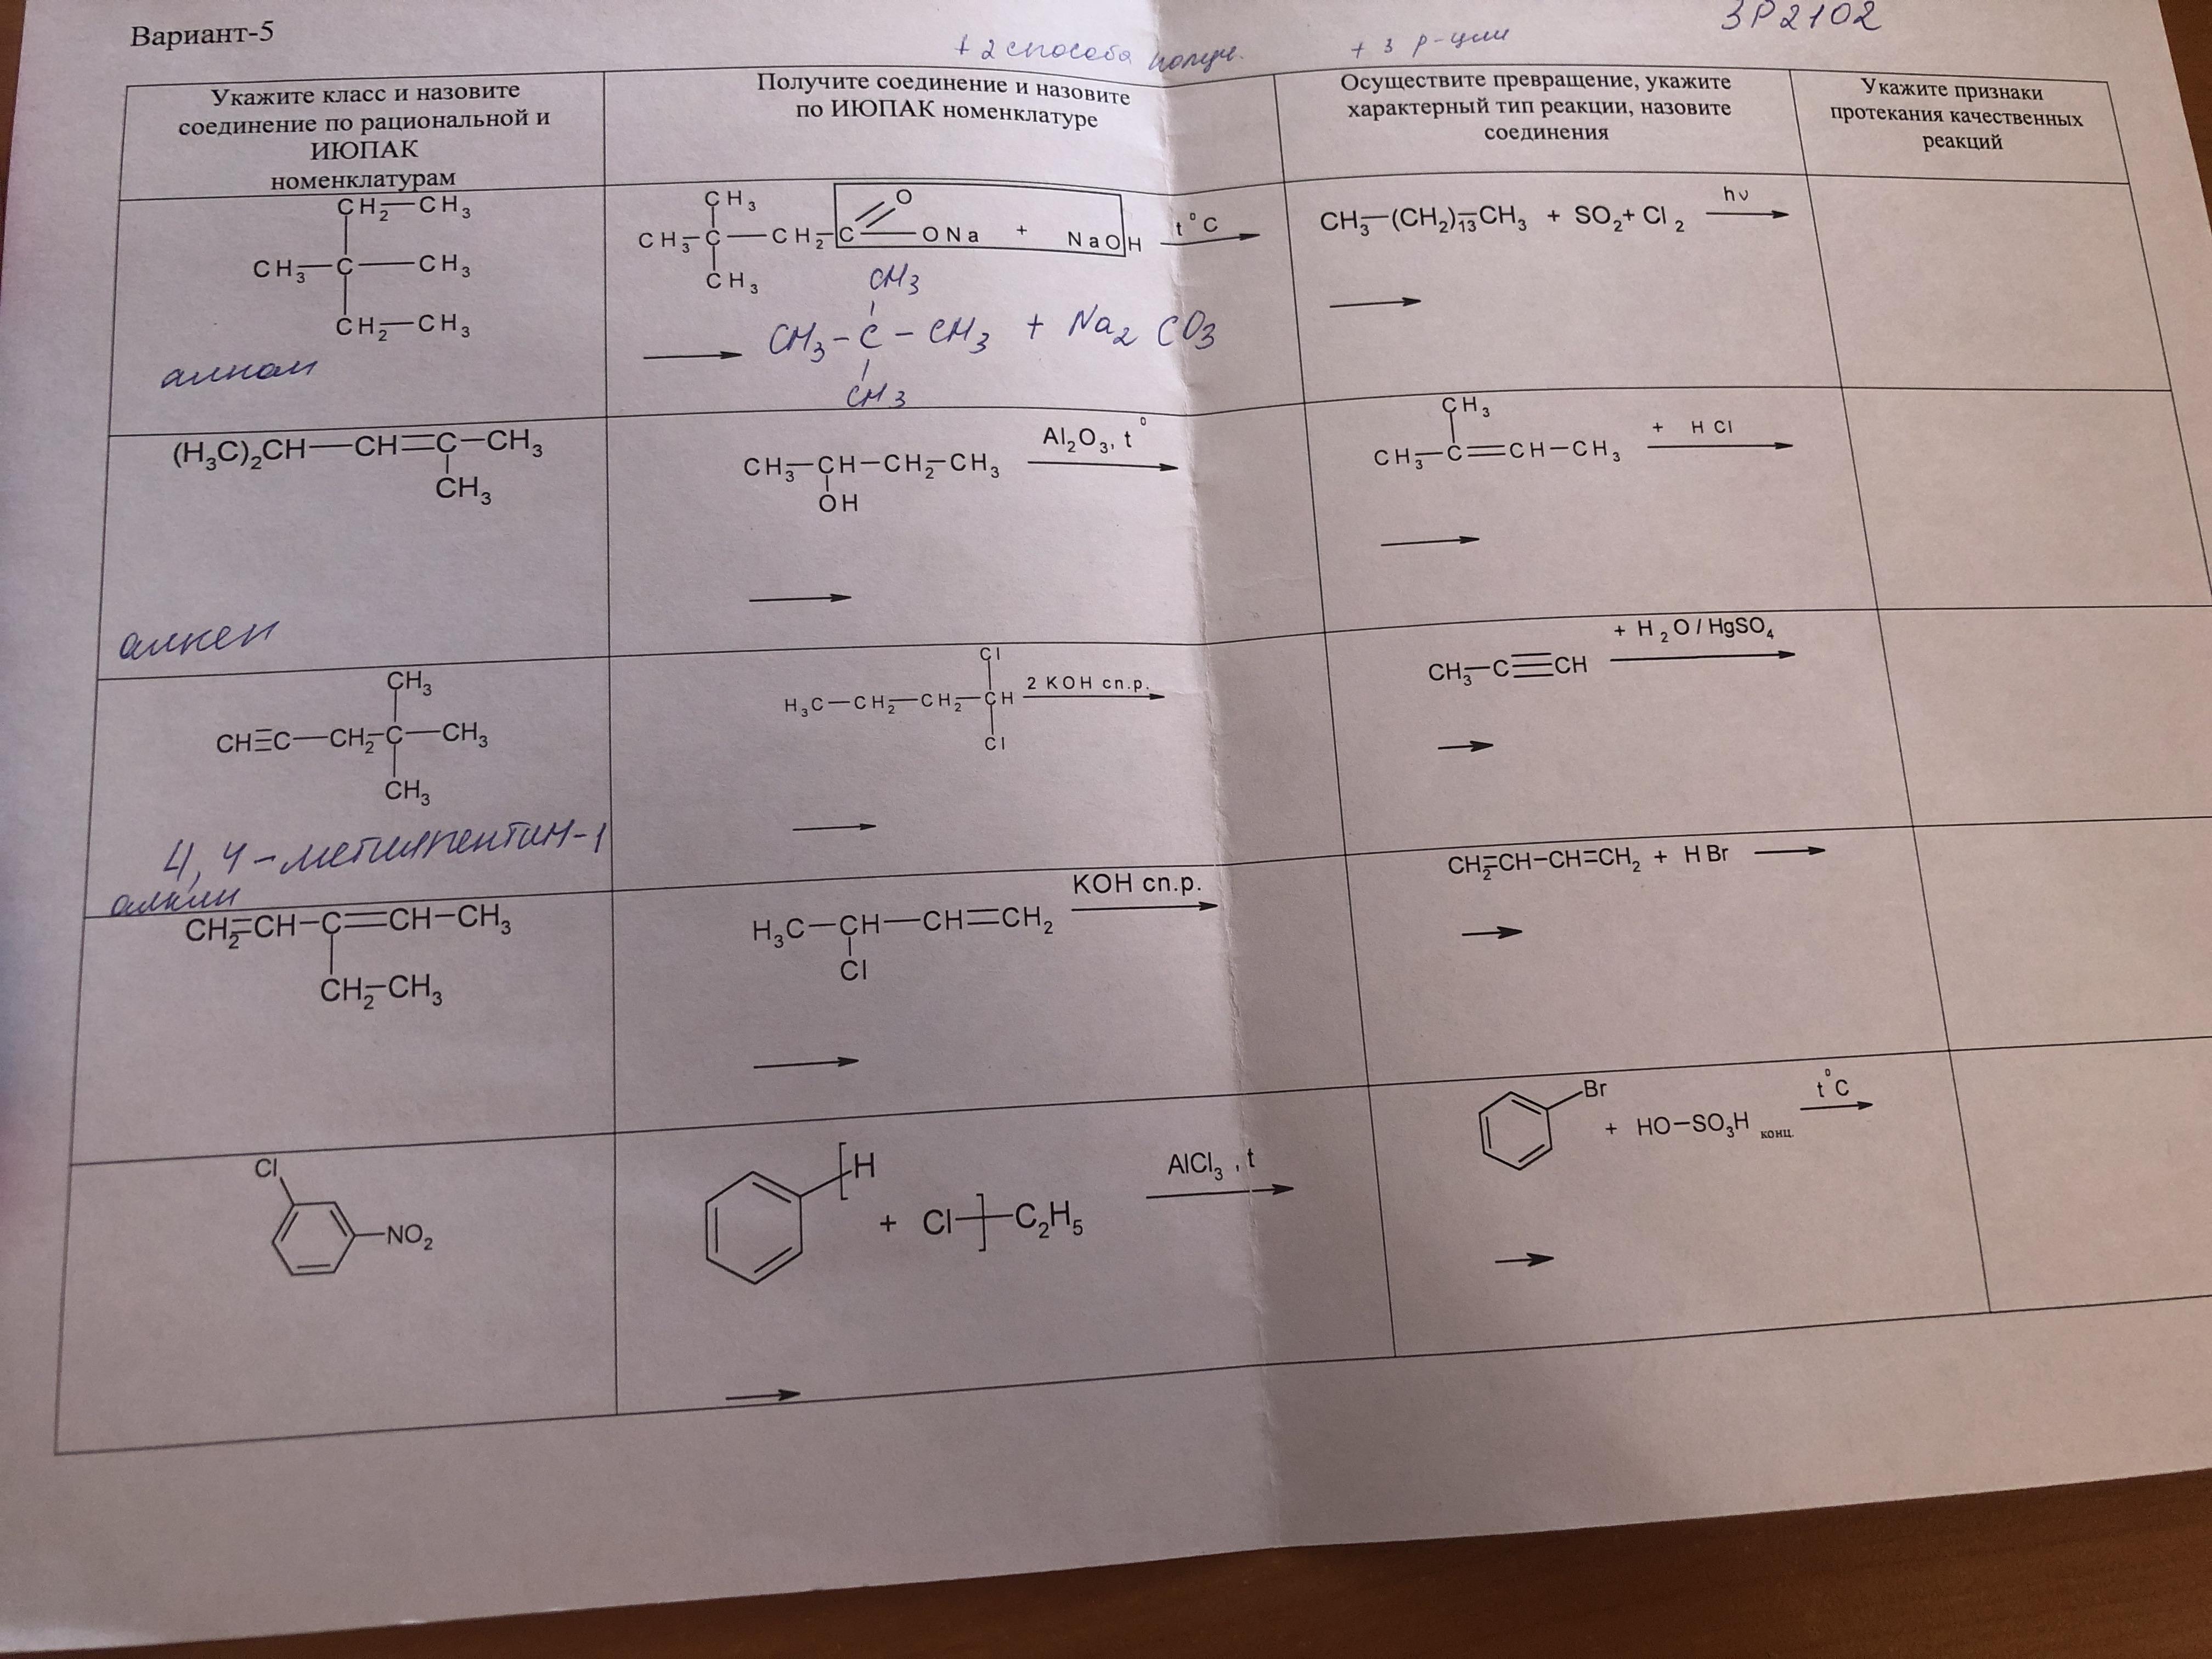 Вариант-5
+ 2 способа получ.
+ 3 р-ции
ЗР2102
Укажите класс и назовите
соединение по рациональной и
ИЮПАК
номенклатурам
Получите соединение и назовите
по ИЮПАК номенклатуре
Осуществите превращение, укажите
характерный тип реакции, назовите
соединения
Укажите признаки
протекания качественных
реакций
CH2—CH3
CH3—C—CH3
CH2—CH3
алкан
CH3
O
CH3—C—CH2—C—ONa + NaOH
t°C
CH3
CH3
CH3–C–CH3 + Na2CO3
CH3
CH3—(CH2)13—CH3 + SO2 + Cl2
hν
(H3C)2CH—CH=C—CH3
CH3
алкен
CH3—CH—CH2—CH3
Al2O3, t°
OH
CH3
CH3—C=CH—CH3
+ HCl
CH3
CH≡C—CH2—C—CH3
CH3
4,4-метилпентин-1
алкин
Cl
H3C—CH2—CH2—CH
2 KOH сп.р.
Cl
CH3—C≡CH
+ H2O / HgSO4
CH2=CH—C=CH—CH3
CH2—CH3
H3C—CH—CH=CH2
KOH сп.р.
Cl
CH2=CH—CH=CH2 + HBr
Cl
NO2
H
+ Cl—C2H5
AlCl3, t
Br
+ HO—SO3H конц.
t°C